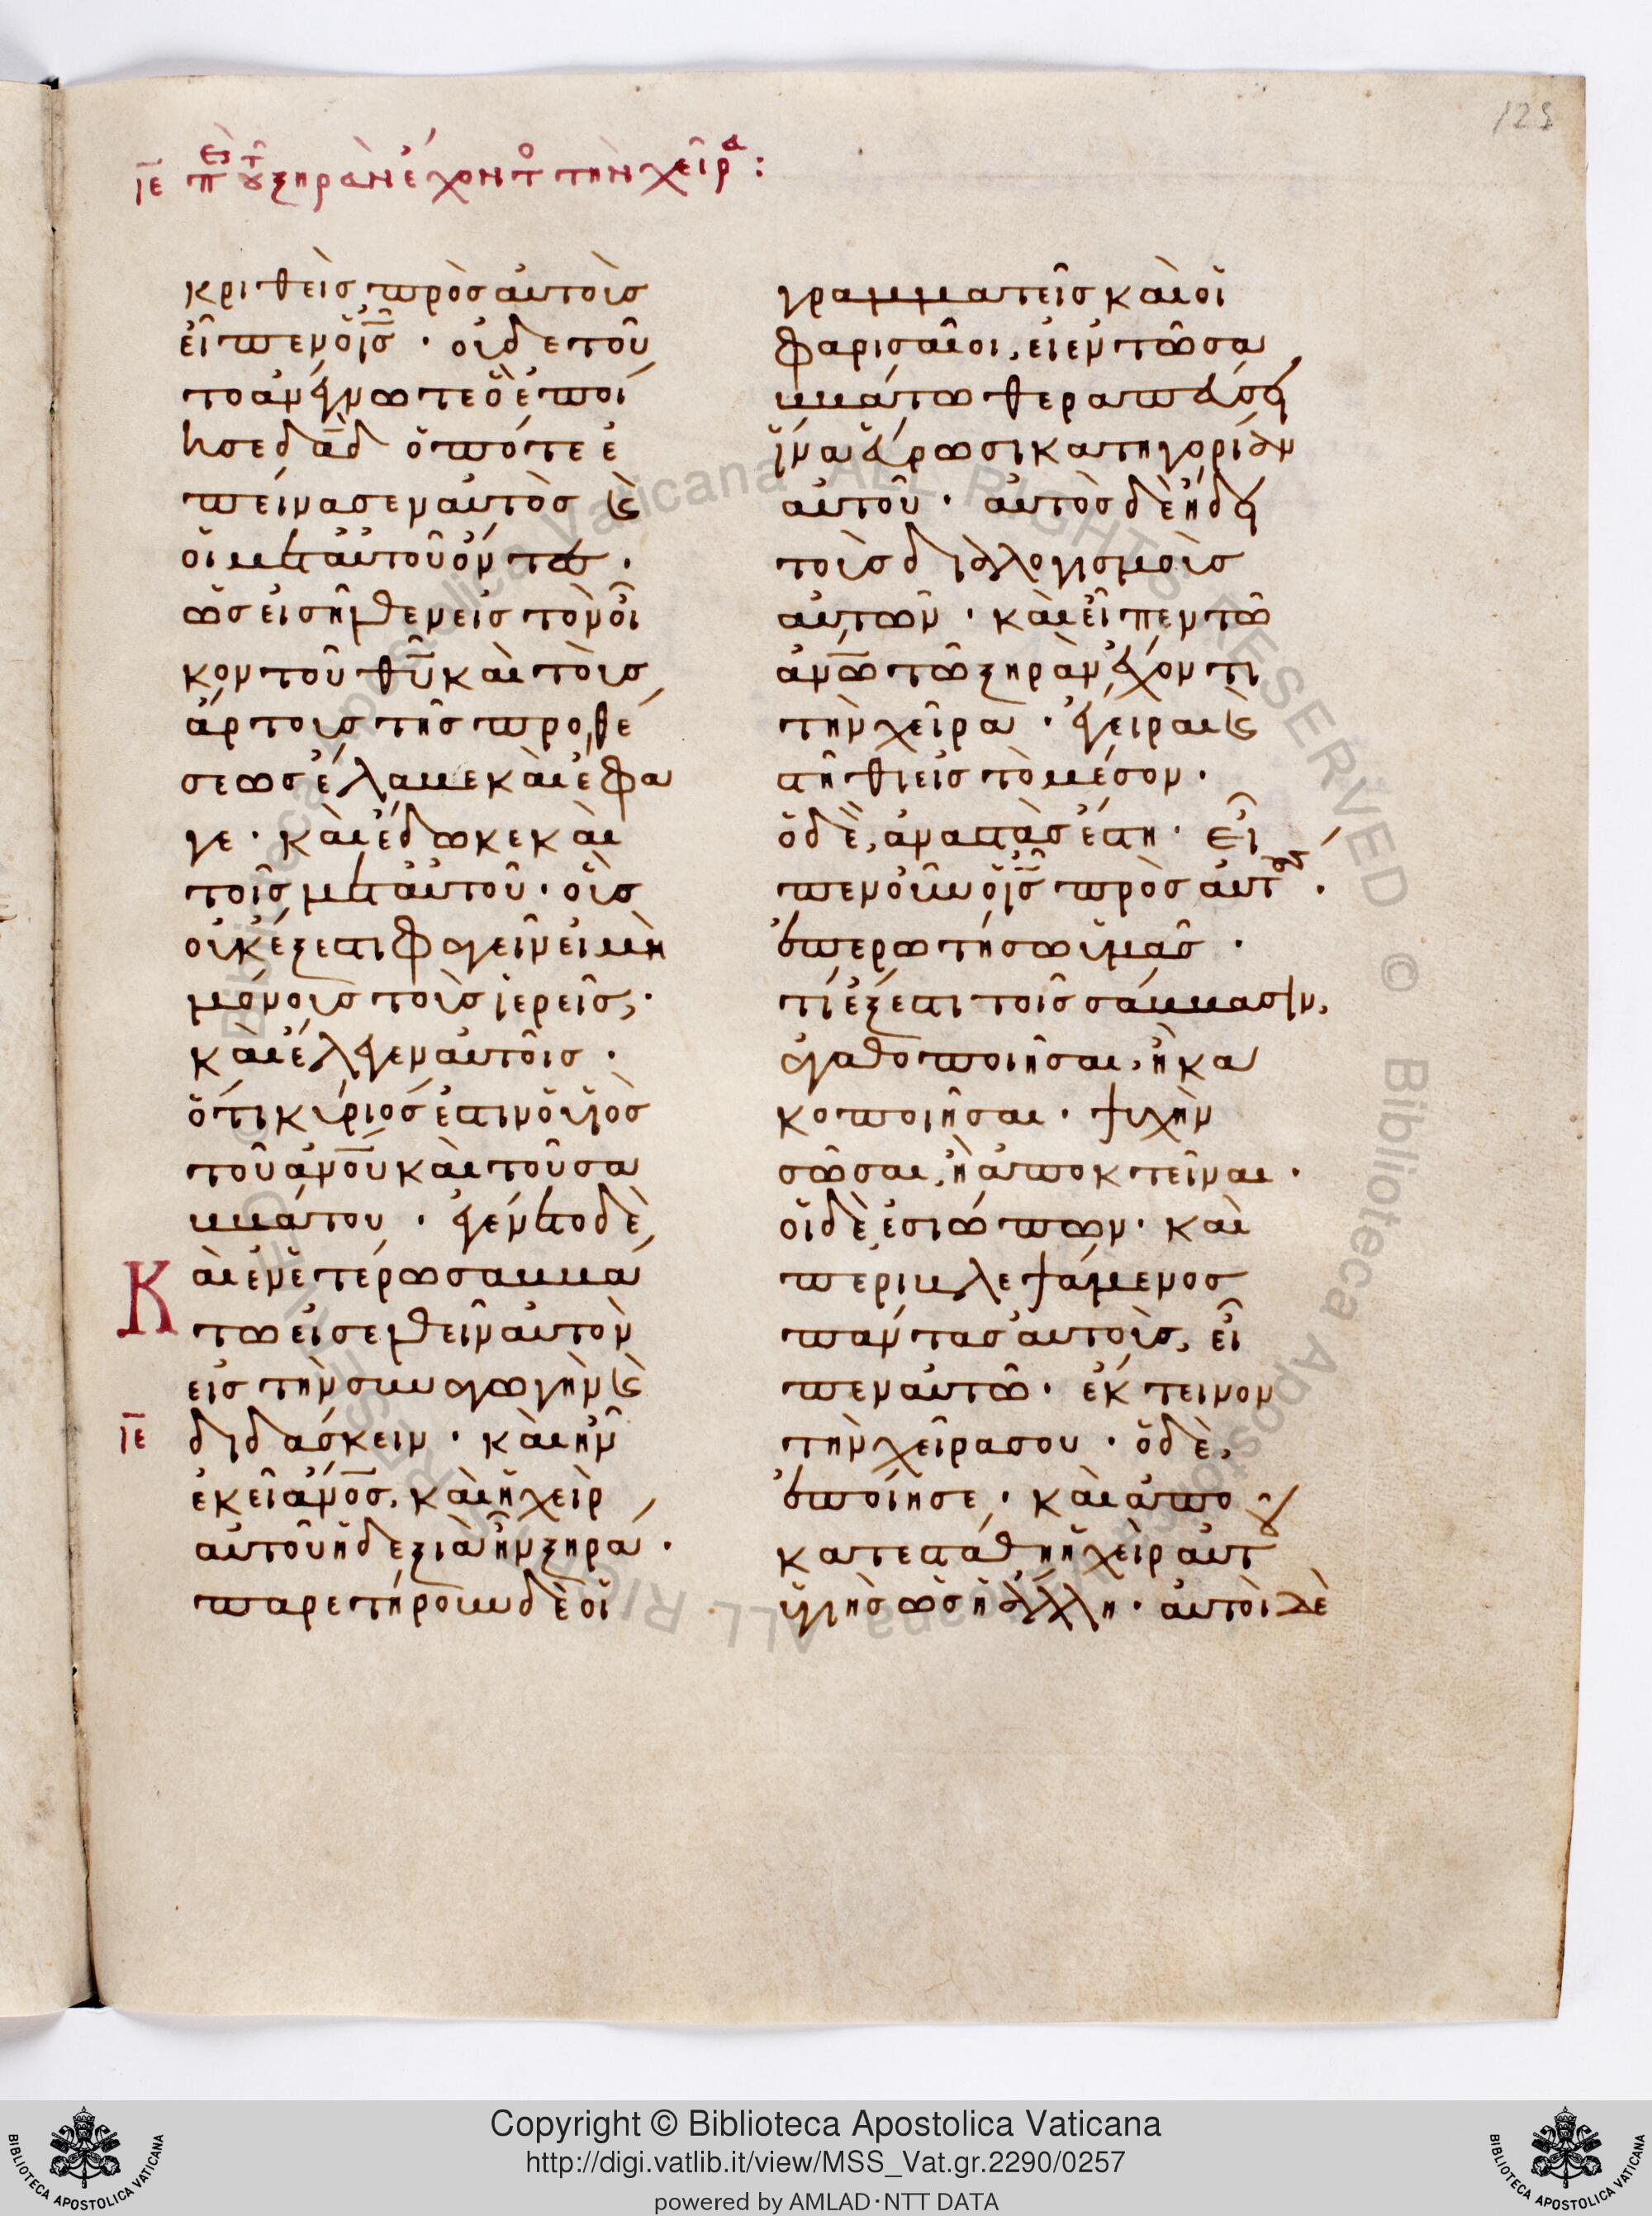 125
ιε περὶ τοῦ ξηρὰν ἔχοντο τὴν χεῖρα:
κριθεὶς πρὸς αὐτοὺς
εἶπεν ὁ ις· οὐδὲ τοῦ
το ἀνέγνωτε ὃ ἐποί
ησε δαδ ὁπότε ἐ
πείνασεν αὐτὸς καὶ
οἱ μετ' αὐτοῦ ὄντες·
ὡς εἰσῆλθεν εἰς τὸν οἶ
κον τοῦ θυ καὶ τοὺς
ἄρτους τῆς προθέ
σεως ἔλαβε καὶ ἔφα
γε· καὶ ἔδωκε καὶ
τοῖς μετ' αὐτοῦ· οὓς
οὐκ ἔξεστι φαγεῖν εἰ μὴ
μόνους τοὺς ἱερεῖς;·
καὶ ἔλεγεν αὐτοῖς·
ὅτι κύριός ἐστιν ὁ υἱὸς
τοῦ ανου καὶ τοῦ σα
ββάτου· ἐγένετο δὲ
Καὶ ἐν ἑτέρω σαββά
τω εἰσελθεῖν αὐτὸν
εἰς τὴν συναγωγὴν καὶ
ιε διδάσκειν· καὶ ἦν
ἐκεῖ ανος, καὶ ἡ χεὶρ
αὐτοῦ ἡ δεξιὰ ἦν ξηρά·
παρετήρουν δὲ οἱ
γραμματεῖς καὶ οἱ
φαρισαῖοι, εἰ ἐν τῶ σα
ββάτω θεραπεύσει
ἵνα εὕρωσι κατηγορίαν
αὐτοῦ· αὐτὸς δὲ ἤδει
τοὺς διαλογισμοὺς
αὐτῶν· καὶ εἶπεν τῶ
ανω τῶ ξηρὰν ἔχοντι
τὴν χεῖρα· ἔγειραι καὶ
στῆθι εἰς τὸ μέσον·
ὁ δὲ, ἀναστὰς ἔστη· εἶ
πεν οὖν ὁ ις πρὸς αὐτούς·
ἐπερωτήσω ὑμᾶς·
τί ἔξεστι τοῖς σάββασιν,
ἀγαθοποιῆσαι, ἢ κα
κοποιῆσαι· ψυχὴν
σῶσαι, ἢ ἀποκτεῖναι·
οἱ δὲ ἐσιώπων· καὶ
περιβλεψάμενος
πάντας αὐτοὺς, εἶ
πεν αὐτῶ· ἔκτεινον
τὴν χεῖρα σου· ὁ δὲ,
ἐποίησε· καὶ ἀπο
κατεστάθη ἡ χεὶρ αὐτοῦ
ὑγιὴς ὡς ἡ ἄλλη· αὐτοὶ δὲ
Copyright © Biblioteca Apostolica Vaticana
http://digi.vatlib.it/view/MSS_Vat.gr.2290/0257
powered by AMLAD·NTT DATA
BIBLIOTECA APOSTOLICA VATICANA
BIBLIOTECA APOSTOLICA VATICANA